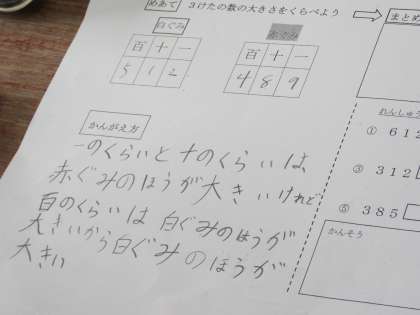 めあて ３けたの数の大きさをくらべよう
まとめ
白ぐみ
百 十 一
5 1 2
赤ぐみ
百 十 一
4 8 9
かんがえ方
一のくらいと十のくらいは、
赤ぐみのほうが大きいけれど
百のくらいは白ぐみのほうが
大きいから白ぐみのほうが
大きい
れんしゅう
① 612
③ 312
⑤ 385
かんそう